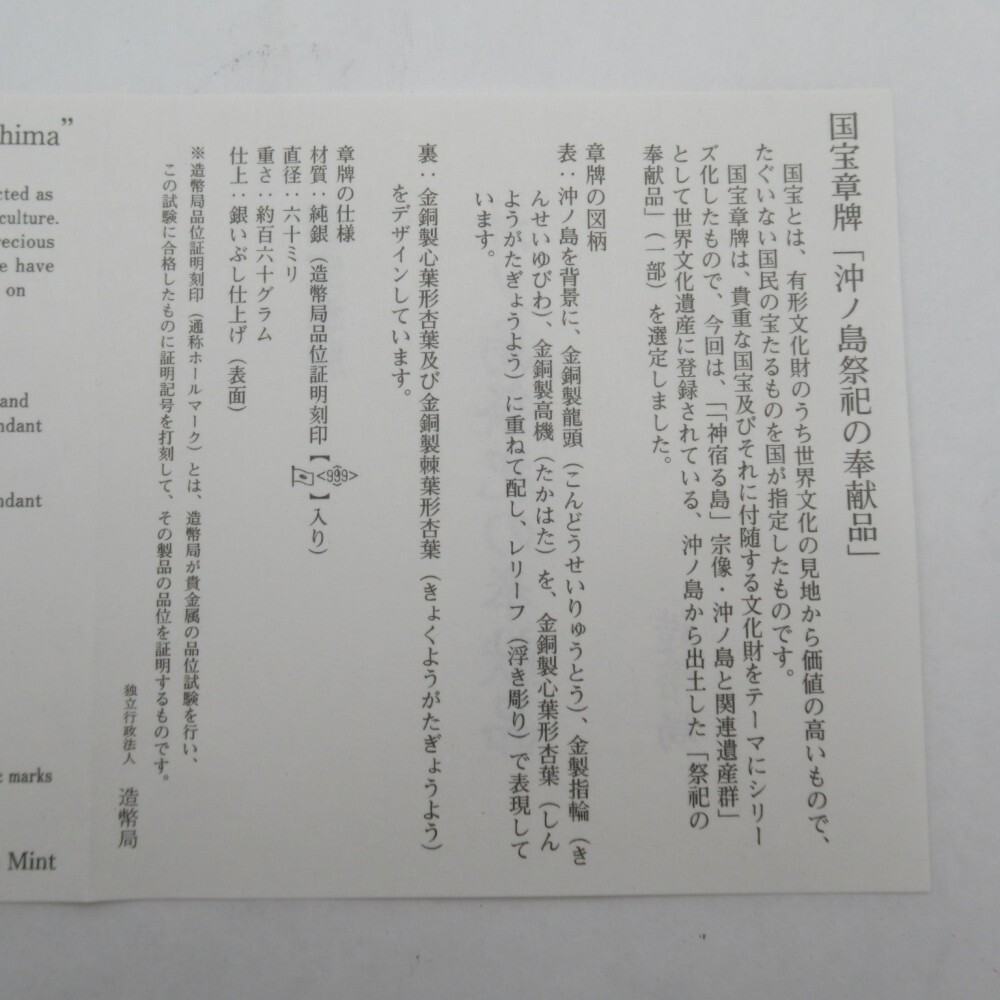 国宝章牌「沖ノ島祭祀の奉献品」
国宝とは、有形文化財のうち世界文化の見地から価値の高いもので、
たぐいない国民の宝たるものを国が指定したものです。
国宝章牌は、貴重な国宝及びそれに付随する文化財をテーマにシリー
ズ化したもので、今回は、「「神宿る島」宗像・沖ノ島と関連遺産群」
として世界文化遺産に登録されている、沖ノ島から出土した「祭祀の
奉献品」(一部)を選定しました。
章牌の図柄
表:沖ノ島を背景に、金銅製龍頭(こんどうせいりゅうとう)、金製指輪(き
んせいゆびわ)、金銅製高機(たかはた)を、金銅製心葉形杏葉(しん
ようがたぎょうよう)に重ねて配し、レリーフ(浮き彫り)で表現して
います。
裏:金銅製心葉形杏葉及び金銅製棘葉形杏葉(きょくようがたぎょうよう)
をデザインしています。
章牌の仕様
材質:純銀(造幣局品位証明刻印【<999>】入り)
直径:六十ミリ
重さ:約百六十グラム
仕上:銀いぶし仕上げ(表面)
※造幣局品位証明刻印(通称ホールマーク)とは、造幣局が貴金属の品位試験を行い、
この試験に合格したものに証明記号を打刻して、その製品の品位を証明するものです。
独立行政法人 造幣局
hima”
cted as
culture.
recious
e have
on
and
ndant
ndant
marks
Mint